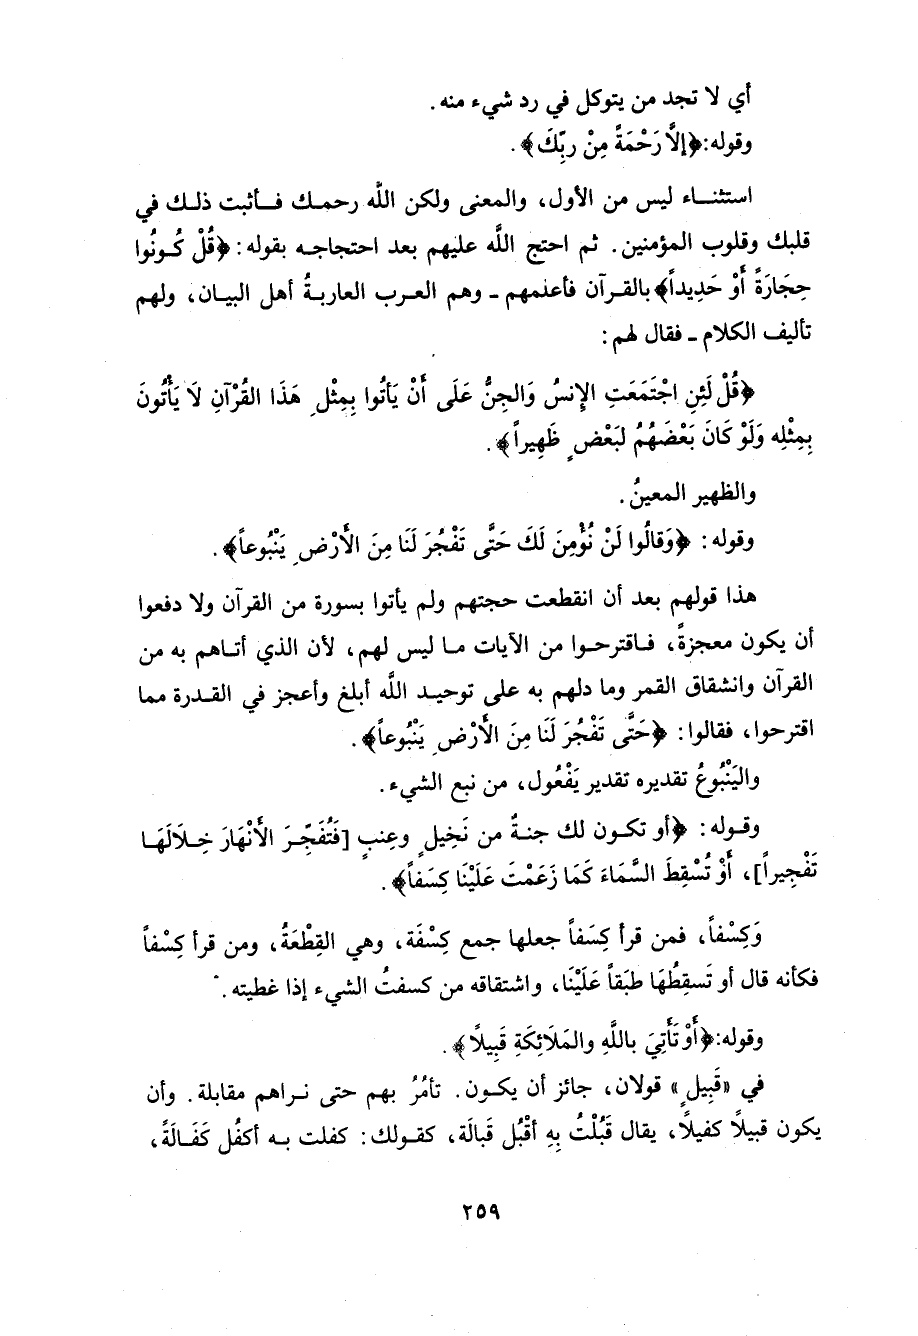 أي لا تجد من يتوكل في رد شيء منه.
وقوله: ﴿إلَّا رَحْمَةً مِنْ ربِّكَ﴾.
استثنـاء ليس من الأول، والمعنى ولكن اللَّه رحمـك فـأثبت ذلـك في
قلبك وقلوب المؤمنين. ثم احتج اللَّه عليهم بعد احتجاجـه بقوله: ﴿قُلْ كُـونُوا
حِجَارَةً أَوْ حَدِيداً﴾ بالقـرآن فأعلمهم ـ وهم العـرب العاربـةُ أهل البيـان، ولهم
تأليف الكلام ـ فقال لهم:
﴿قُلْ لَئِنِ اجْتَمَعَتِ الإِنسُ وَالجِنُّ عَلَى أَنْ يَأتُوا بِمِثْلِ هَذَا القُرْآنِ لَا يَأْتُونَ
بِمِثْلِه وَلَوْ كَانَ بَعْضَهُمُ لبَعْضٍ ظَهِيراً﴾.
والظهير المعينُ.
وقوله: ﴿وَقالُوا لَنْ نُؤْمِنَ لَكَ حَتَّى تَفْجُرَ لَنَا مِنَ الأَرْضِ يَنْبُوعاً﴾.
هذا قولهم بعد أن انقطعت حجتهم ولم يأتوا بسورة من القرآن ولا دفعوا
أن يكون معجزةً، فـاقترحـوا من الآيات مـا ليس لهم، لأن الذي أتـاهم به من
القرآن وانشقاق القمر وما دلهم به على توحيـد اللَّه أبلغ وأعجز في القـدرة مما
اقترحوا، فقالوا: ﴿حَتَّى تَفْجُرَ لَنَا مِنَ الأَرْضِ يَنْبُوعاً﴾.
واليَنْبُوعُ تقديره تقدير يَفْعُول، من نبع الشيء.
وقـوله: ﴿أو تكـون لك جنـةٌ من نَخِيلٍ وعِنبٍ [فَتُفَجِّـرَ الأَنْهَارَ خِـلَالَهَـا
تَفْجِيراً]، أَوْ تُسْقِطَ السَّمَاءَ كَمَا زَعَمْتَ عَلَيْنَا كِسَفاً﴾.
وَكِسْفاً، فمن قرأ كِسَفاً جعلها جمع كِسْفَة، وهي القِطْعَةُ، ومن قرأ كِسْفاً
فكأنه قال أو تَسقِطُهَا طبَقاً عَلَيْنَا، واشتقاقه من كسفتُ الشيء إذا غطيته.
وقوله: ﴿أَوْ تَأَتِيَ باللَّهِ والمَلَائِكَةِ قَبِيلاً﴾.
في «قَبِيلٍ» قولان، جائز أن يكـون. تأمُرُ بهم حتى نـراهم مقابلة. وأن
يكون قبيلاً كفيلاً، يقال قَبُلْتُ بِهِ أَقْبُل قَبالَة، كقـولك: كفلت بـه أكفُل كَفَـالَةً،
٢٥٩